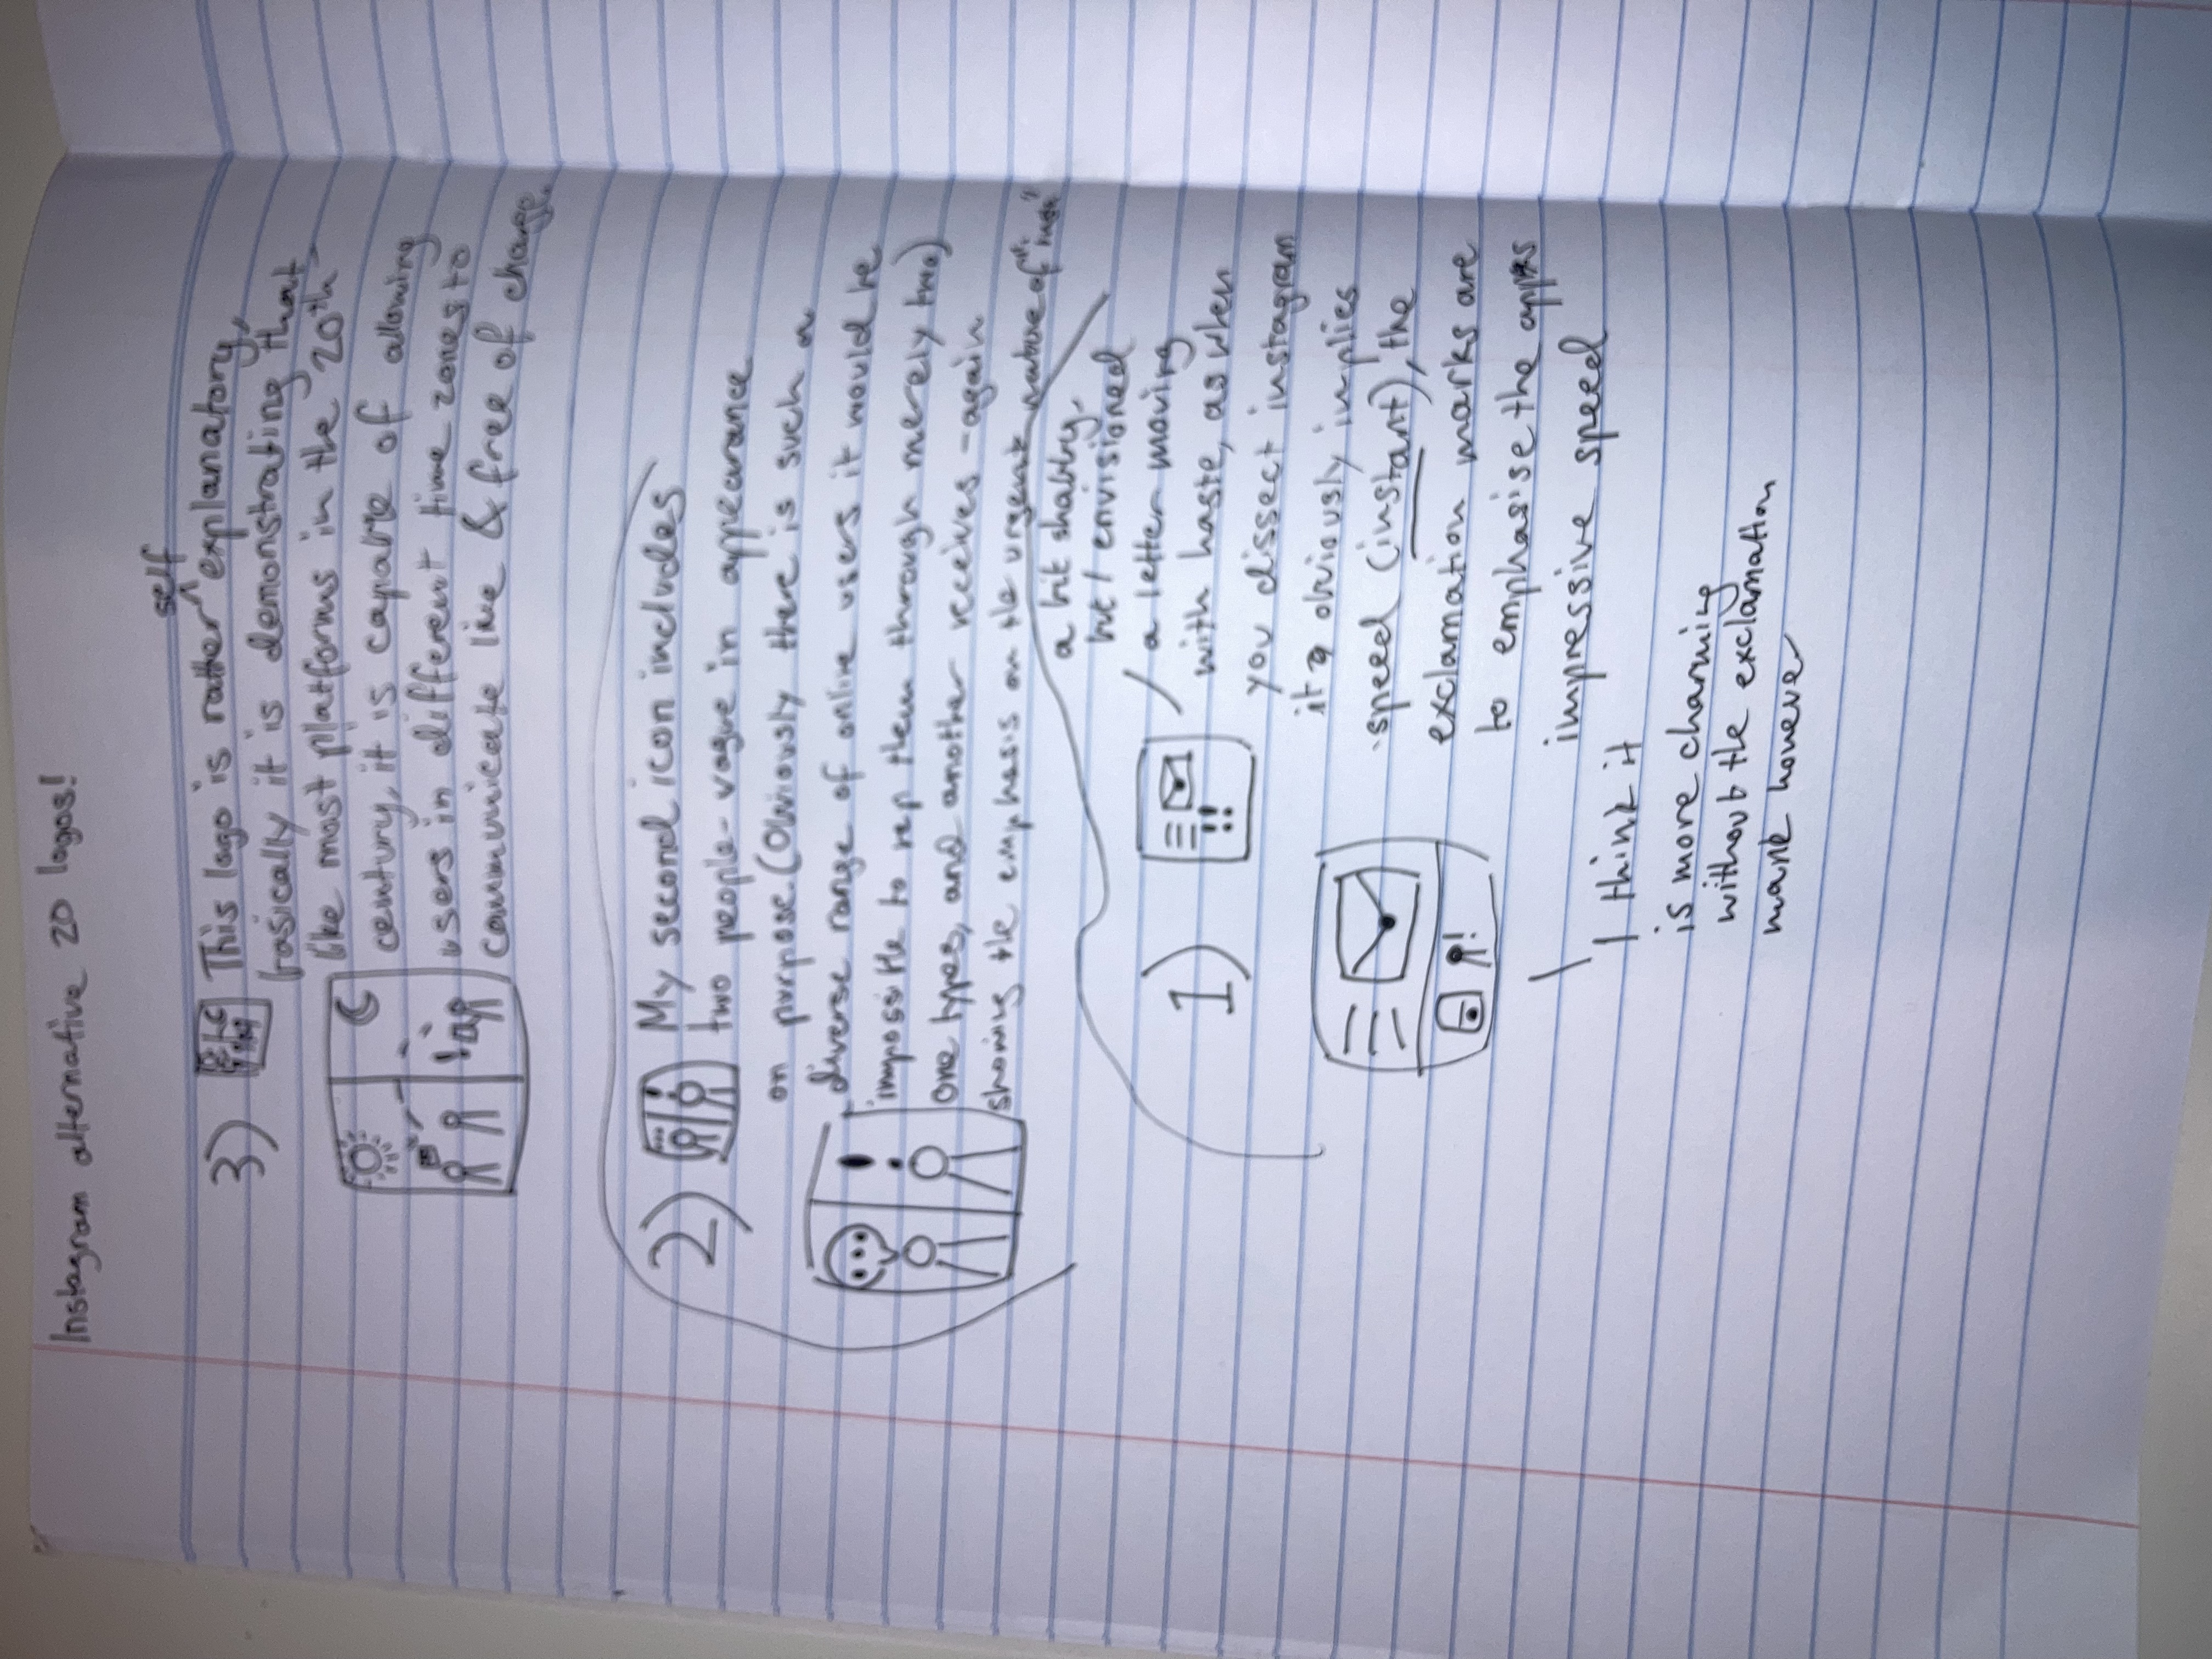 Instagram alternative 20 logos!
self
3) This logo is rather ^ explanatory,
basically it is demonstrating that,
like most platforms in the 20th
century, it is capable of allowing
users in different time zones to
communicate live & free of charge.
2) My second icon includes
two people - vague in appearance
on purpose. (Obviously there is such a
diverse range of online users it would be
impossible to rep them through merely two)
one types, and another receives - again
showing the emphasis on the urgent nature of "insta"
1)
a bit shabby,
but I envisioned
a letter moving
with haste, as when
you dissect instagram
it obviously implies
speed (instant), the
exclamation marks are
to emphasise the apps
impressive speed
I think it
is more charming
without the exclamation
mark however